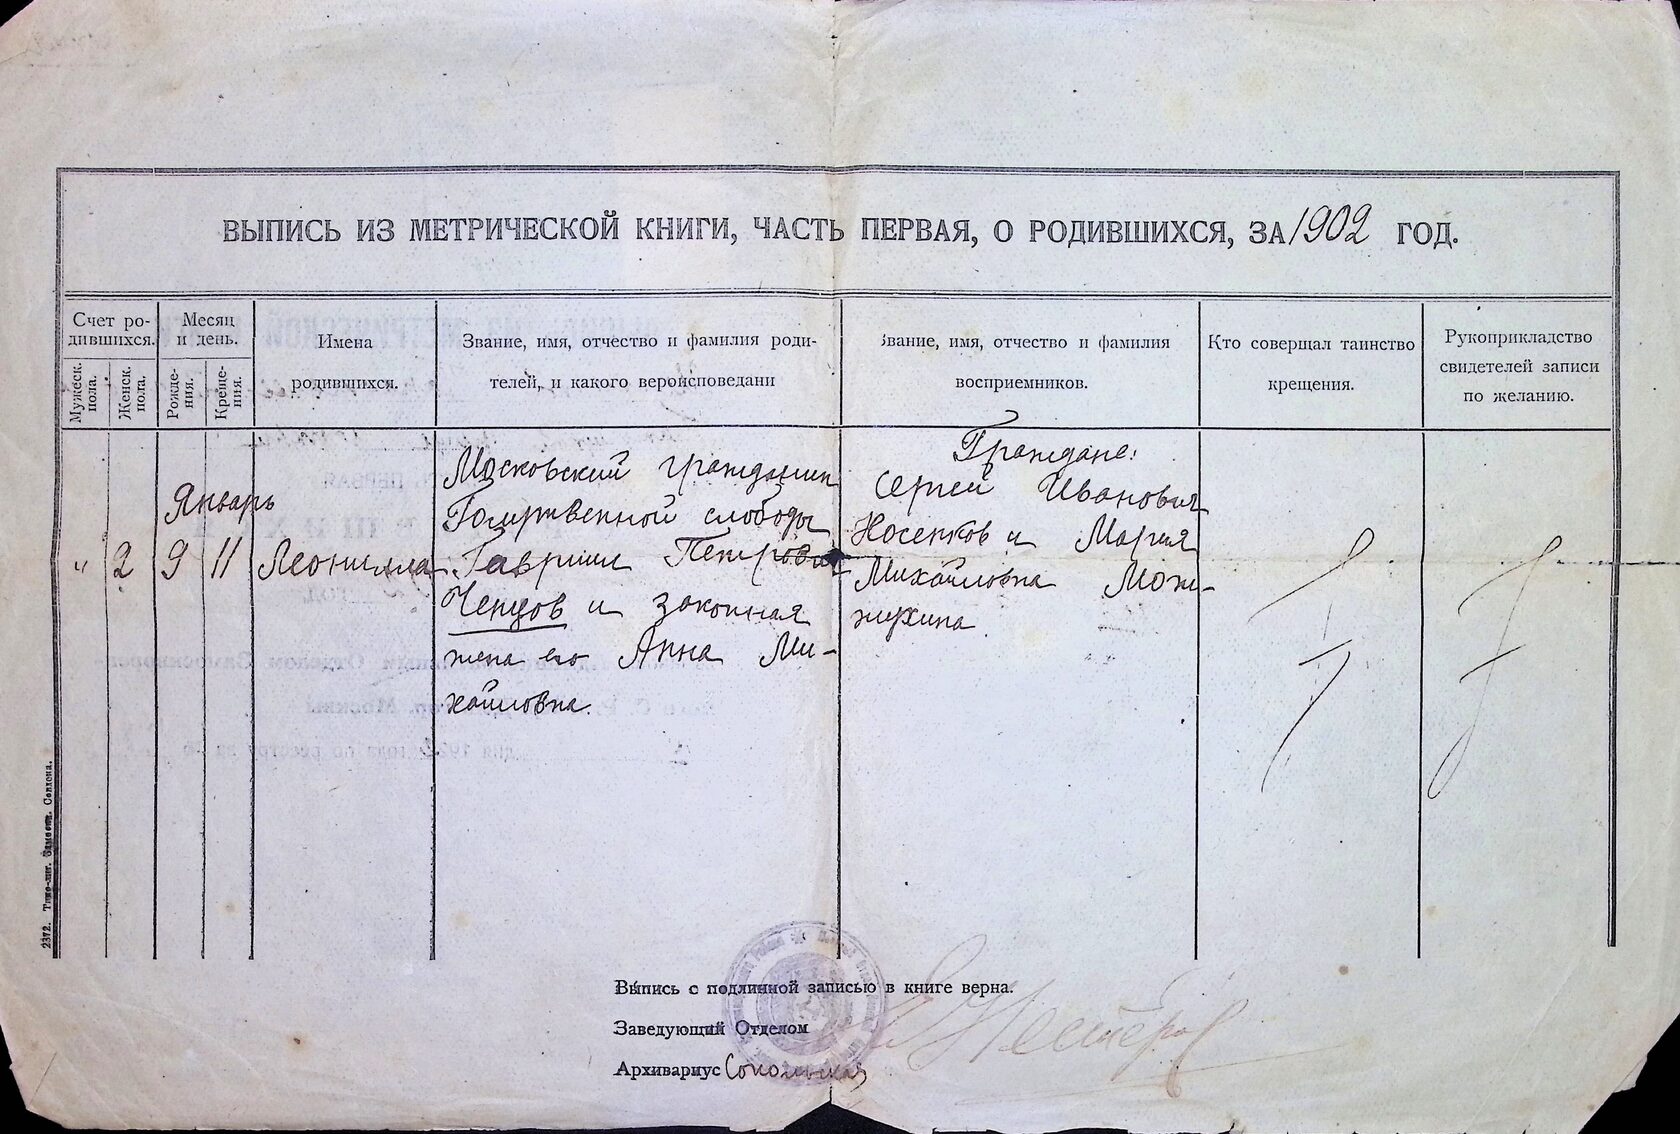 ВЫПИСЬ ИЗ МЕТРИЧЕСКОЙ КНИГИ, ЧАСТЬ ПЕРВАЯ, О РОДИВШИХСЯ, ЗА 1902 ГОД.
Счет ро-
дившихся.
Мужеск.
пола.
Женск.
пола.
Месяц
и день.
Рожде-
ния.
Креще-
ния.
Имена
родившихся.
Звание, имя, отчество и фамилия роди-
телей, и какого вероисповедани
Звание, имя, отчество и фамилия
восприемников.
Кто совершал таинство
крещения.
Рукоприкладство
свидетелей записи
по желанию.
Январь
" 2 9 11
Леонилла
Московский гражданин
слободы
Гавриил Петрович
Чепцов и законная
жена его Анна Ми-
хайловна.
Граждане:
Сергей Иванович
Носенков и Мария
Михайловна Мож-
жухина
Выпись с подлинной записью в книге верна.
Заведующий Отделом
Архивариус Сокольская
2372. Типо-лит. Замоск. Совдепа.